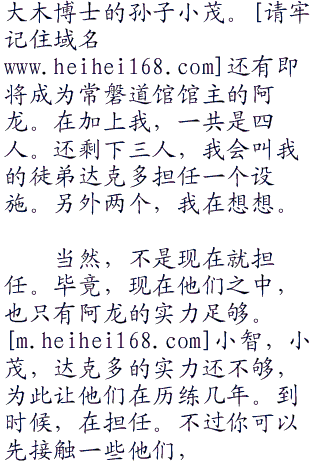 大木博士的孙子小茂。[请牢
记住域名
www.heihei168.com]还有即
将成为常磐道馆馆主的阿
龙。在加上我，一共是四
人。还剩下三人，我会叫我
的徒弟达克多担任一个设
施。另外两个，我在想想。
当然，不是现在就担
任。毕竟，现在他们之中，
也只有阿龙的实力足够。
[m.heihei168.com]小智，小
茂，达克多的实力还不够，
为此让他们在历练几年。到
时候，在担任。不过你可以
先接触一些他们，